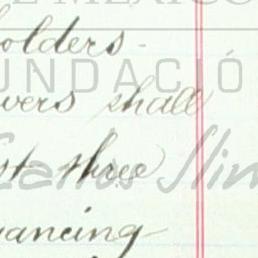 DE MÉXICO
holders.
FUNDACIÓ
wers shall
st three
Carlos Slim
nancing